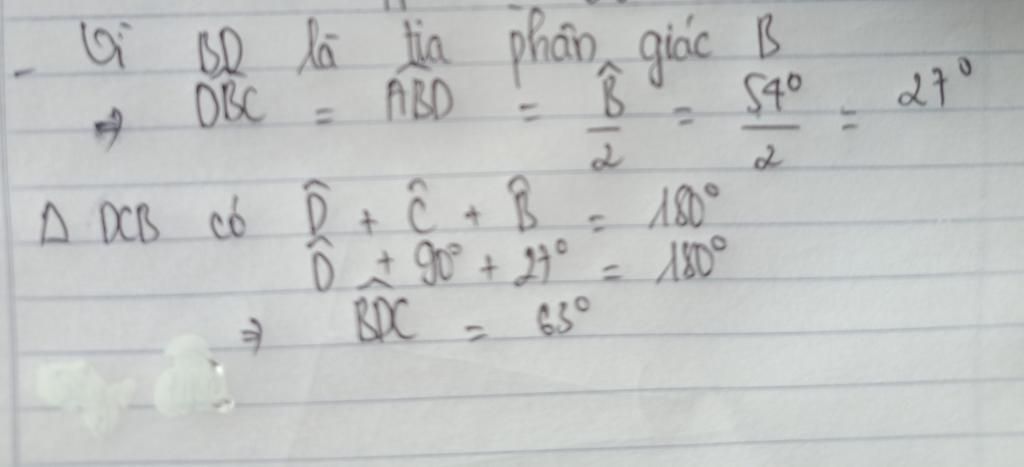 - Vì BD là tia phân giác B
⇒ DBC = ABD = B̂/2 = 54°/2 = 27°
Δ DCB có D̂ + Ĉ + B̂ = 180°
D̂ + 90° + 27° = 180°
⇒ BDC = 63°